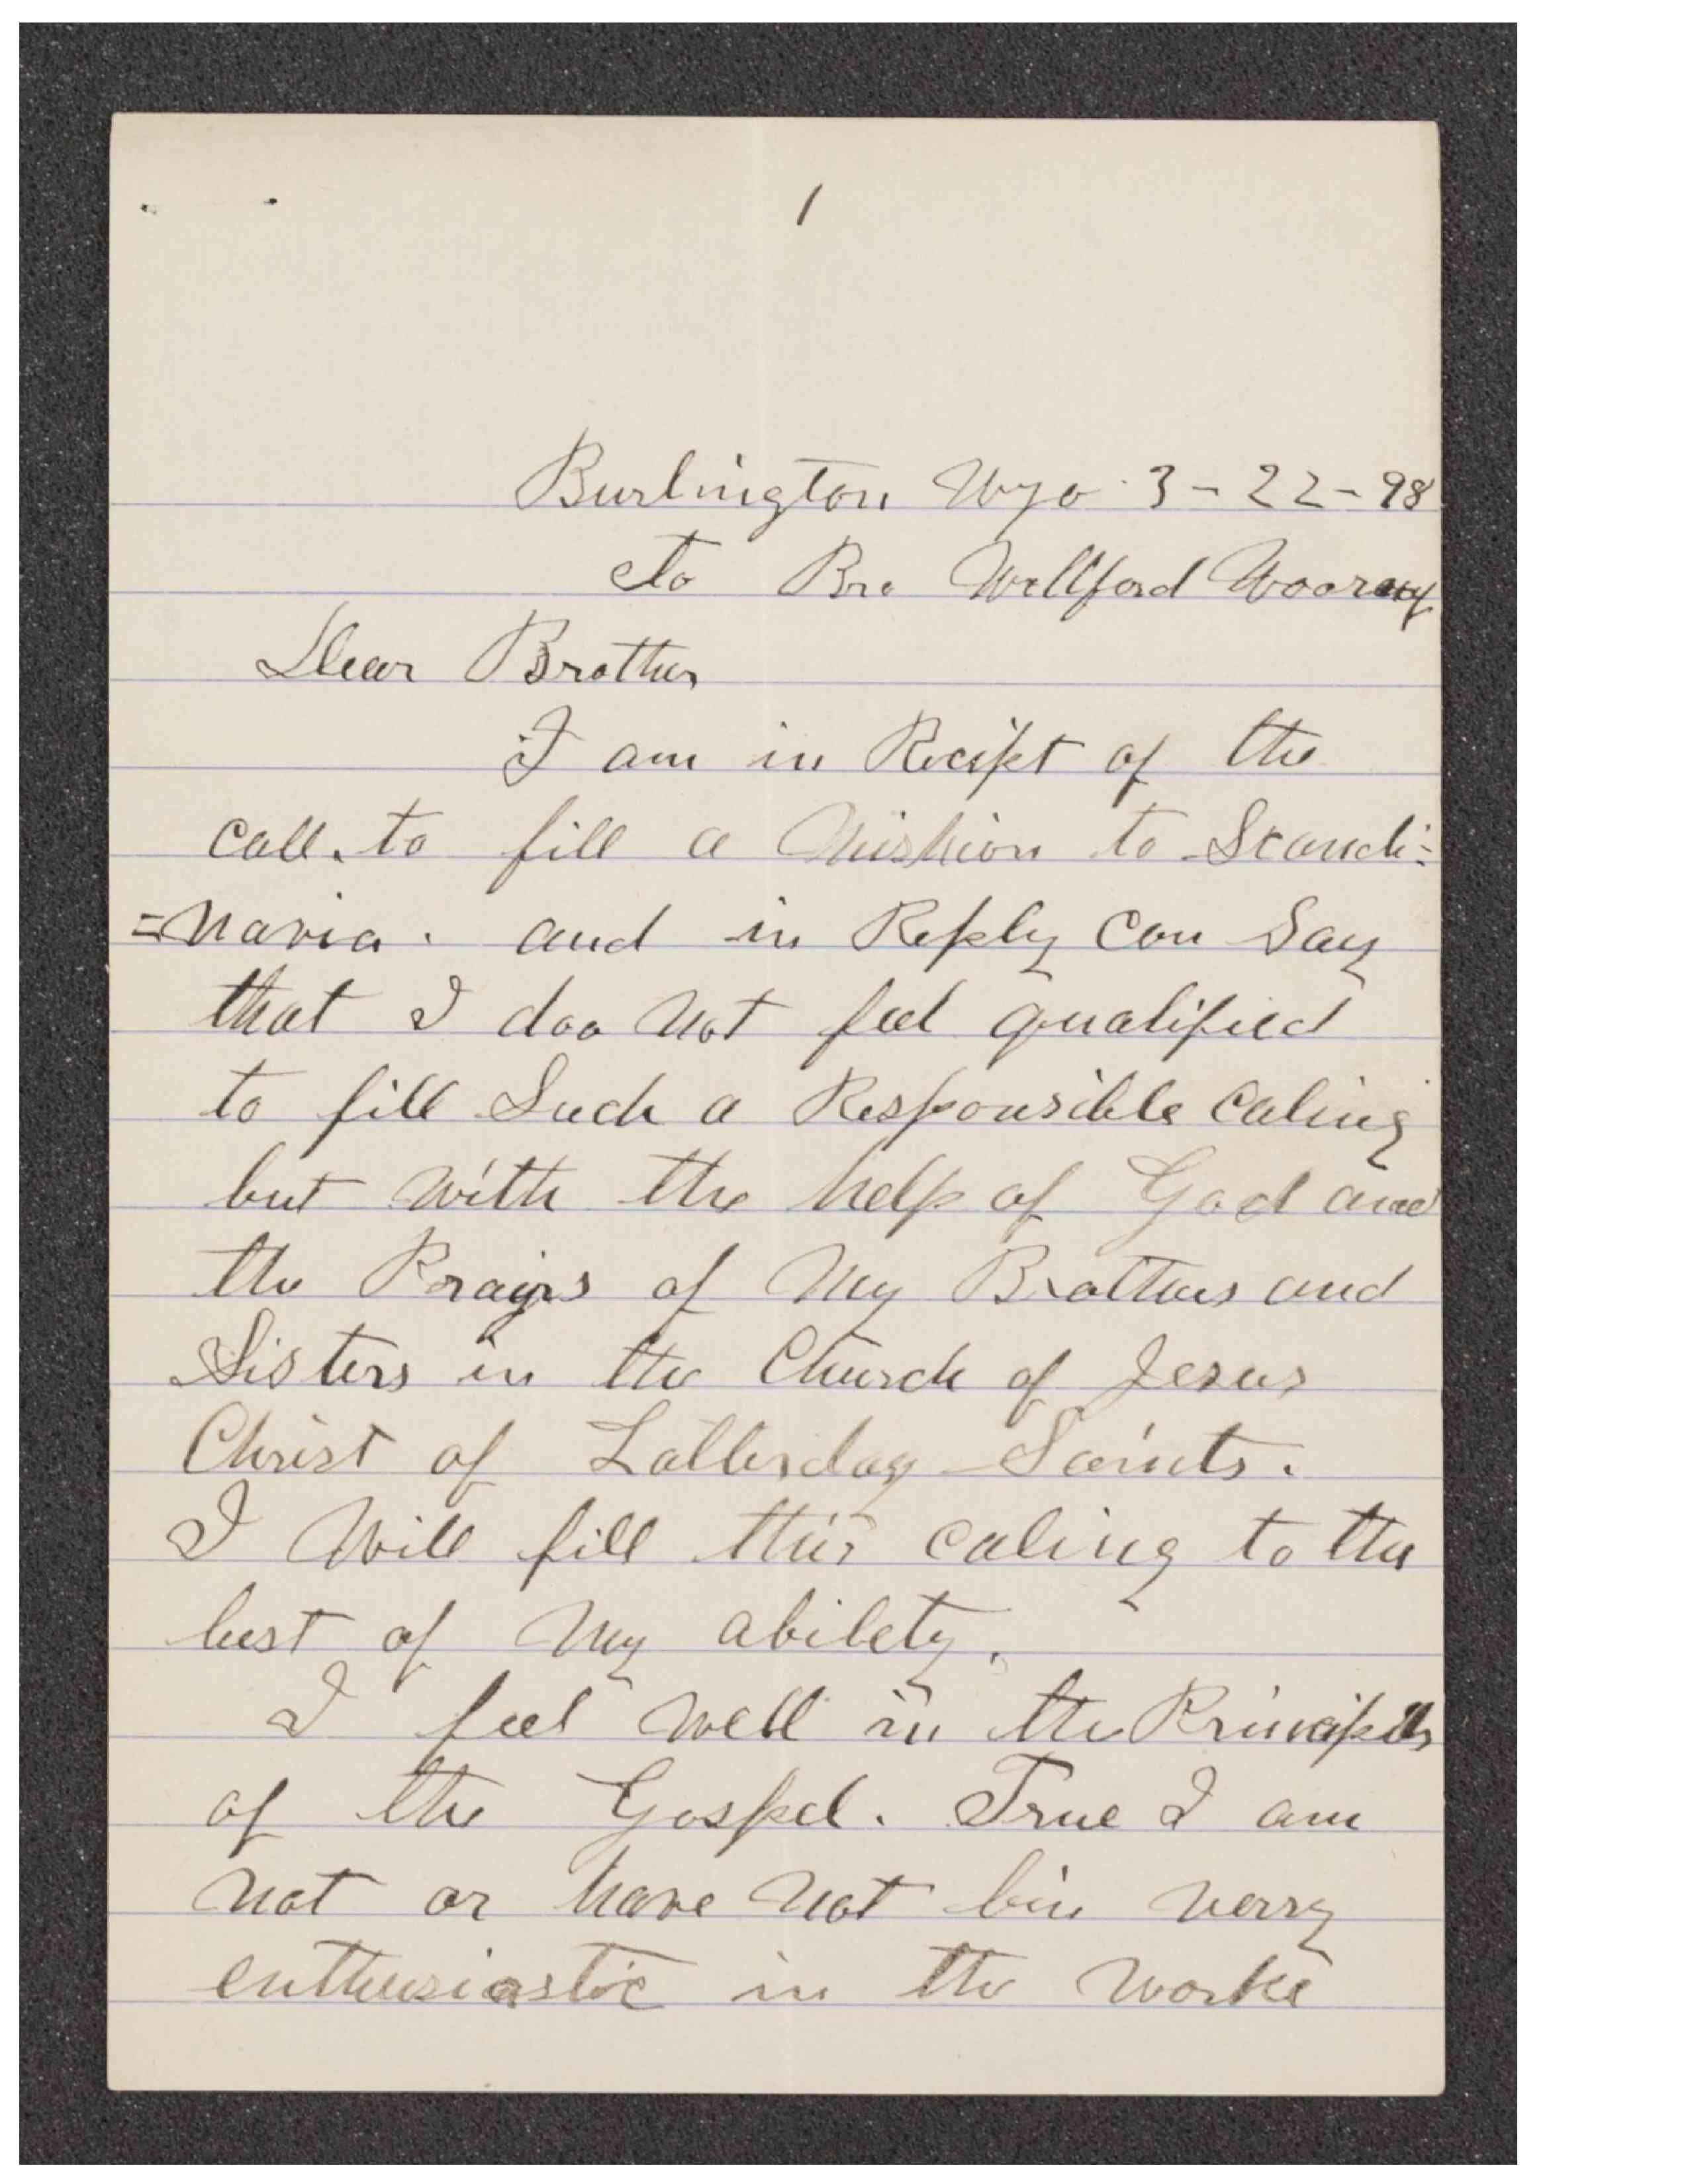 1
Burlington Wyo 3-22-98
to Bro Willford
Dear Brother
I am in Recipt of the
call. to fill a Mishion to Scandi=
=navia. and in Reply Can Say
that I doo Not feel qualified
to fill Such a Responsible Caling
but with the help of God and
the Prayrs of My Brothers and
Sisters in the Church of Jesus
Christ of Latterday Saints.
I Will fill this caling to the
best of My abilety.
I feel Well in the Principils
of the Gospel. True I am
Not or have Not bin verry
enthusiastic in the Worke